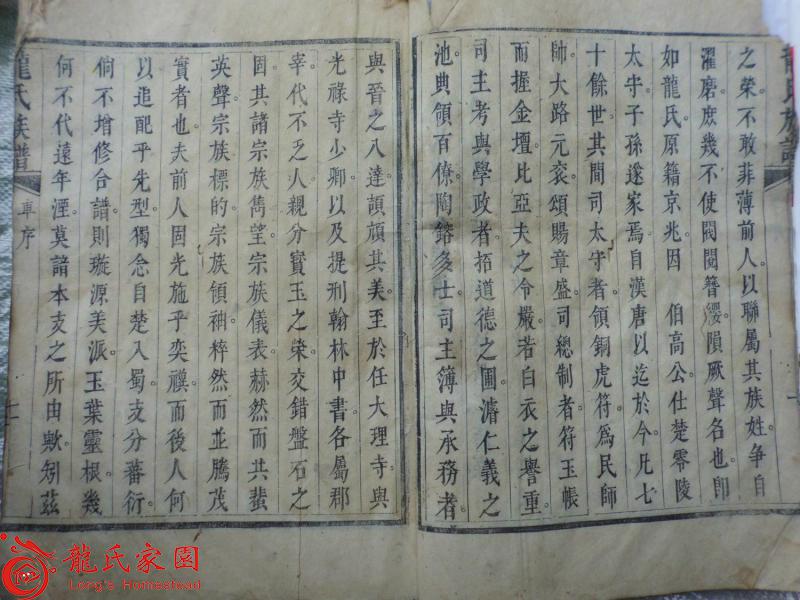 之榮不敢菲薄前人以聯屬其族姓爭自
濯磨庶幾不使閥閱簪纓隕厥聲名也即
如龍氏原籍京兆因 伯高公仕楚零陵
太守子孫遂家焉自漢唐以迄於今凡七
十餘世其間司太守者領銅虎符為民師
帥大路元袞頌賜章盛司總制者符玉帳
而握金壇比亞夫之令嚴若白衣之譽重
司主考與學政者招道德之圃濬仁義之
池典領百僚陶鎔多士司主簿與承務者
與晉之八達頡頏其美至於任大理寺與
光祿寺少卿以及提刑翰林中書各屬郡
宰代不乏人親分寶玉之榮交錯盤石之
固其諸宗族雋望宗族儀表赫然而共蜚
英聲宗族標的宗族領袖粹然而並騰茂
實者也夫前人固光施乎奕禩而後人何
以追配乎先型獨念自楚入蜀支分蕃衍
倘不增修合譜則璇源美派玉葉靈根幾
何不代遠年湮莫諳本支之所由歟矧茲
龍氏族譜
車序
龍氏家園
Long's Homestead